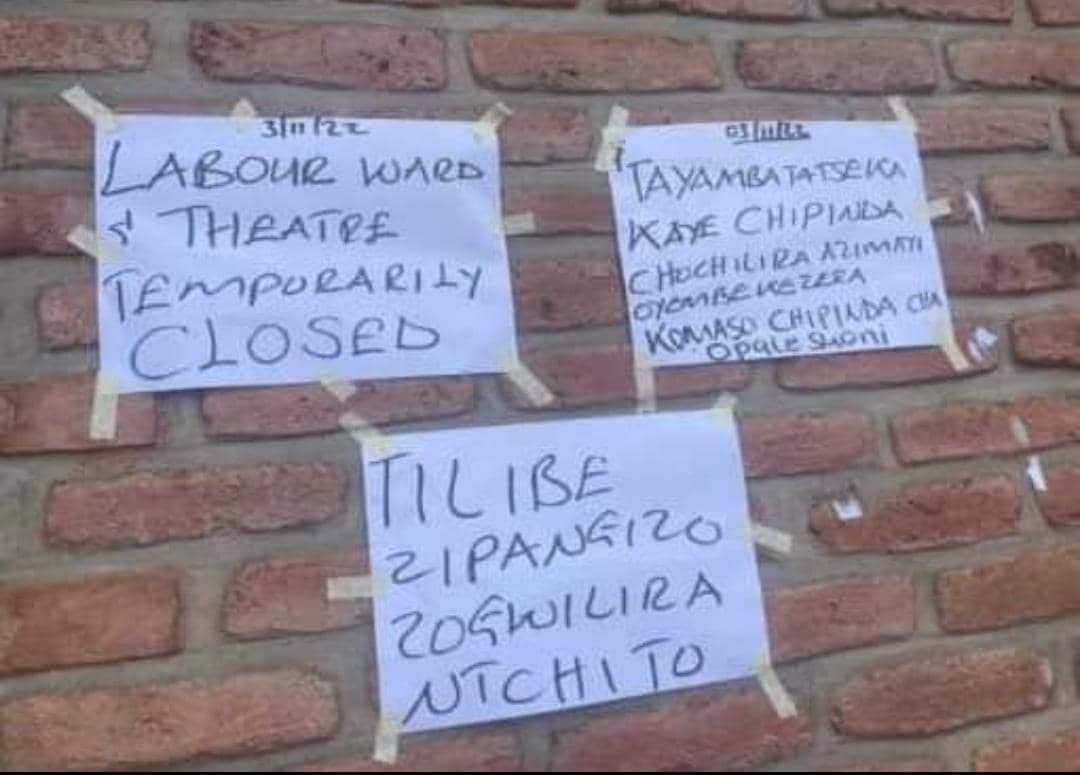 3/11/22
LABOUR WARD
& THEATRE
TEMPORARILY
CLOSED
03/11/22
TAYAMBA TATSEKA
KAYE CHIPINDA
CHOCHILIRA AZIMAYI
OYEMBEKEZERA
KOMASO CHIPINDA CHA
OPALESHONI
TILIBE
ZIPANGIZO
ZOGWILIRA
NTCHITO